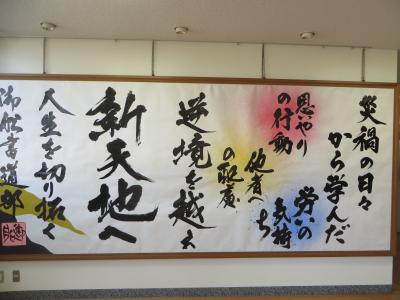 災禍の日々
から学んだ
労いの
気持ち
思いやり
の行動
他者へ
の配慮
逆境を越え
新天地へ
人生を切り拓く
御船書道部